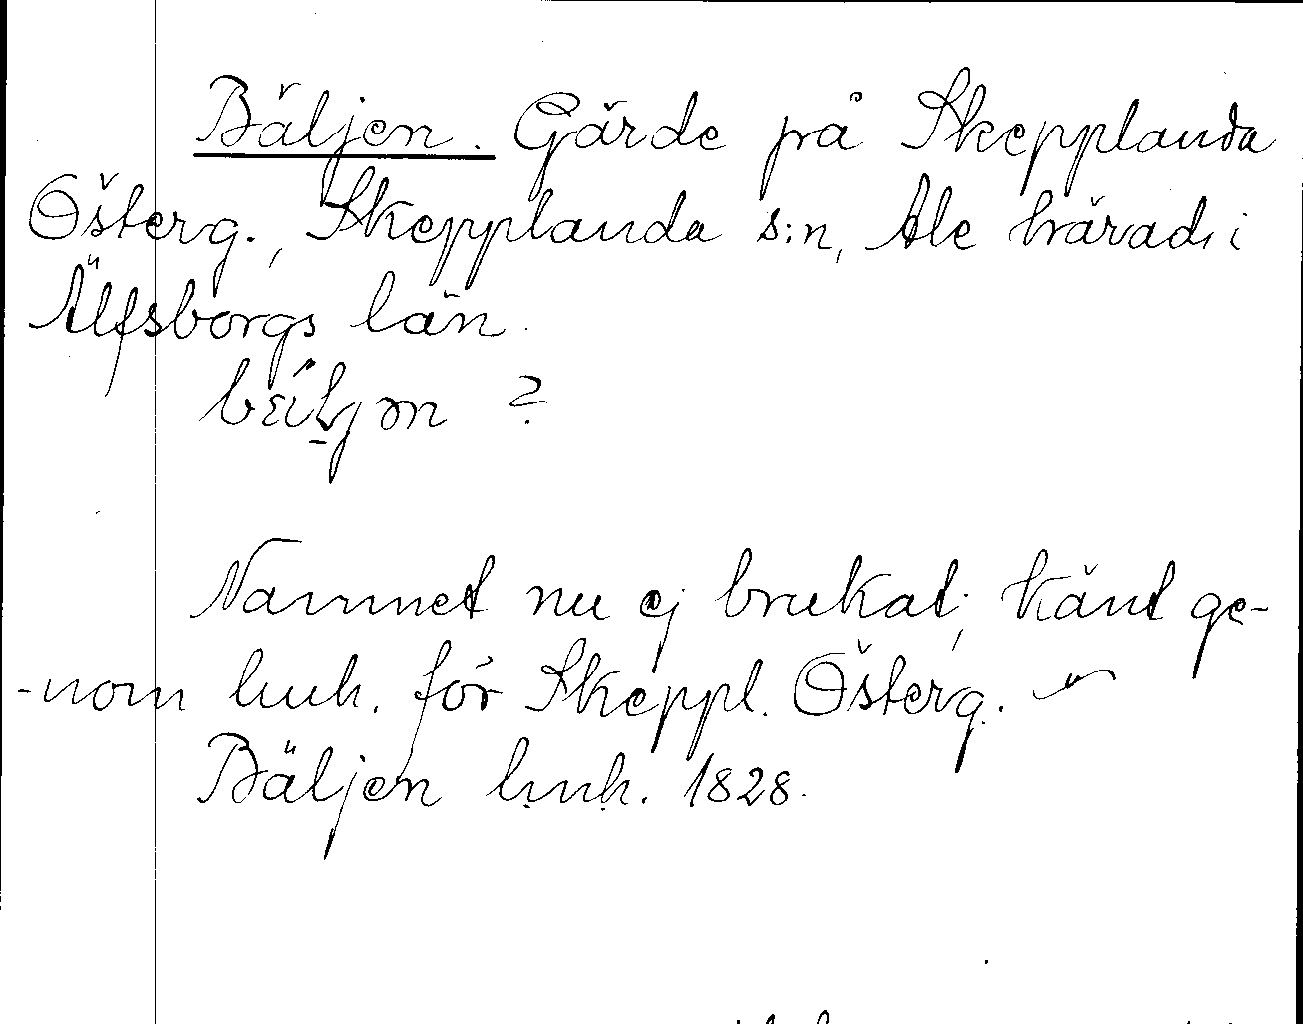 Bäljen. Gärde på Skepplanda
Österg., Skepplanda s:n, Ale härad i
Älfsborgs län.
?
Namnet nu ej brukat; känt ge-
-nom huh. för Skeppl. Österg.
Bäljen huh. 1828.